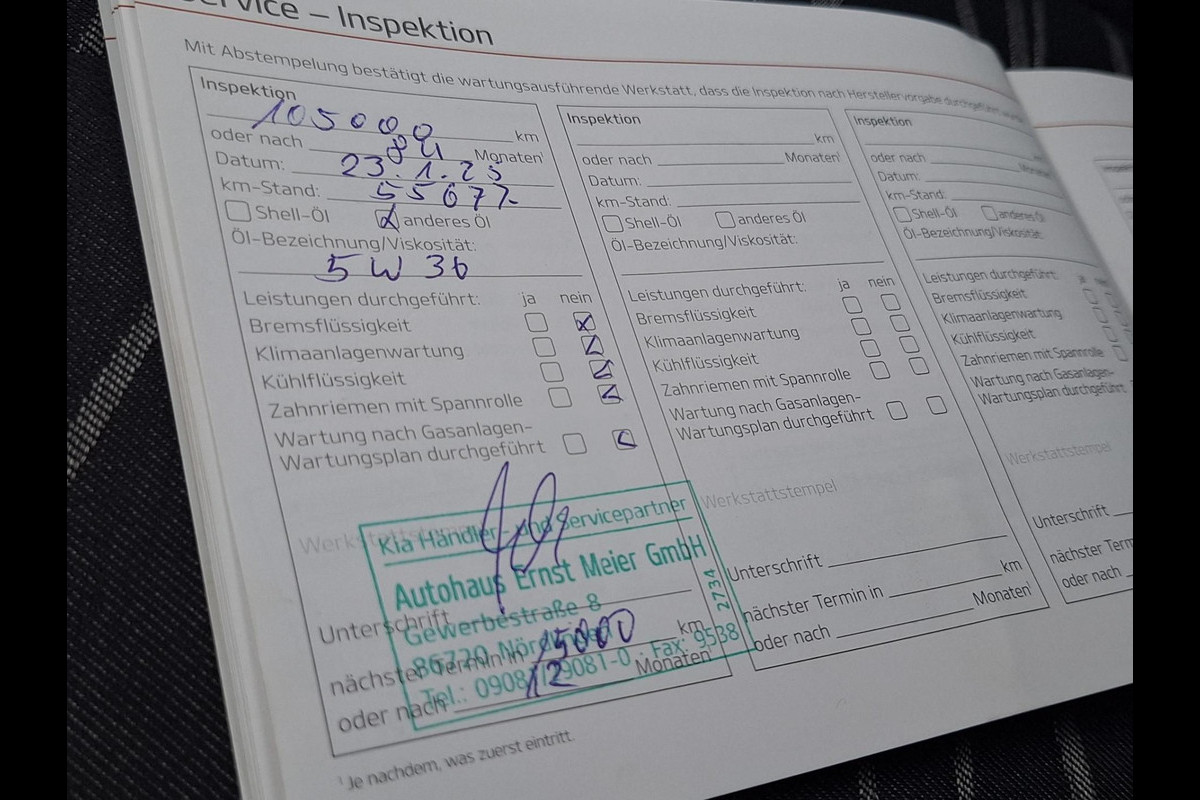 Service – Inspektion
Mit Abstempelung bestätigt die wartungsausführende Werkstatt, dass die Inspektion nach Herstellervorgabe durchgeführt
Inspektion
105000 km
oder nach 84 Monaten¹
Datum: 23.1.25
km-Stand: 55677
Shell-Öl anderes Öl
Öl-Bezeichnung/Viskosität:
5 W 30
Leistungen durchgeführt: ja nein
Bremsflüssigkeit
Klimaanlagenwartung
Kühlflüssigkeit
Zahnriemen mit Spannrolle
Wartung nach Gasanlagen-
Wartungsplan durchgeführt
Kia Händler- und Servicepartner
Autohaus Ernst Meier GmbH
Gewerbestraße 8
86720 Nördlingen
Tel.: 09081/29081-0 · Fax: 9538
2734
Unterschrift
nächster Termin in 15000 km
oder nach 12 Monaten¹
Inspektion
km
oder nach Monaten¹
Datum:
km-Stand:
Shell-Öl anderes Öl
Öl-Bezeichnung/Viskosität:
Leistungen durchgeführt: ja nein
Bremsflüssigkeit
Klimaanlagenwartung
Kühlflüssigkeit
Zahnriemen mit Spannrolle
Wartung nach Gasanlagen-
Wartungsplan durchgeführt
Werkstattstempel
Unterschrift
nächster Termin in km
oder nach Monaten¹
Inspektion
oder nach
Datum:
km-Stand:
Shell-Öl anderes Öl
Öl-Bezeichnung/Viskosität:
Leistungen durchgeführt: ja
Bremsflüssigkeit
Klimaanlagenwartung
Kühlflüssigkeit
Zahnriemen mit Spannrolle
Wartung nach Gasanlagen-
Wartungsplan durchgeführt
Werkstattstempel
Unterschrift
nächster Term
oder nach
¹ Je nachdem, was zuerst eintritt.